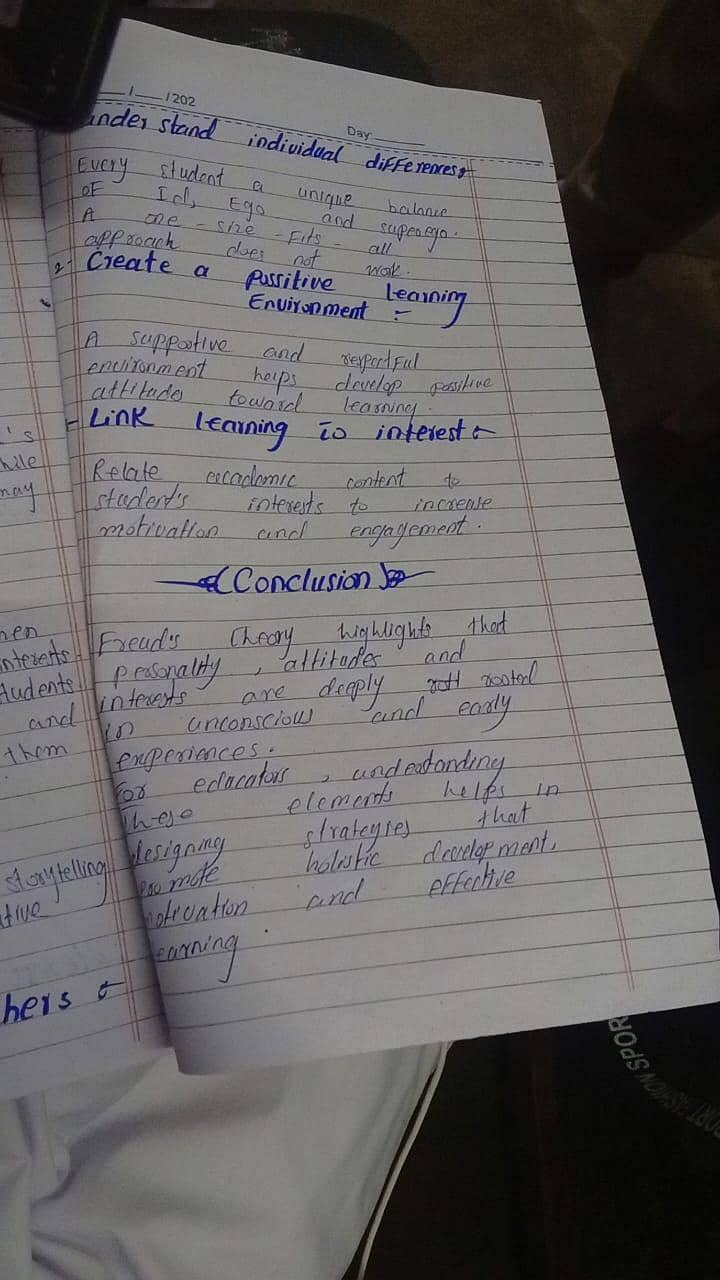 / /202
Day
understand individual differences:
Every student a unique balance
of Id, Ego and superego.
A one-size-Fits-all
approach does not work.
2- Create a possitive learning
Environment :-
A supportive and respectful
environment helps develop possitive
attitudes toward learning.
- Link learning to interest :-
Relate accademic content to
student's interests to increase
motivation and engagement.
(Conclusion)
Freud's theory highlights that
personality, attitudes and
interests are deeply rooted
in unconscious and early
experiences.
For educators, understanding
these elements helps in
designing strategies that
promote holistic development,
motivation and effective
learning.
's
hile
may
hen
interests
tudents
and
them
storytelling
ative
hers :-
SPOR